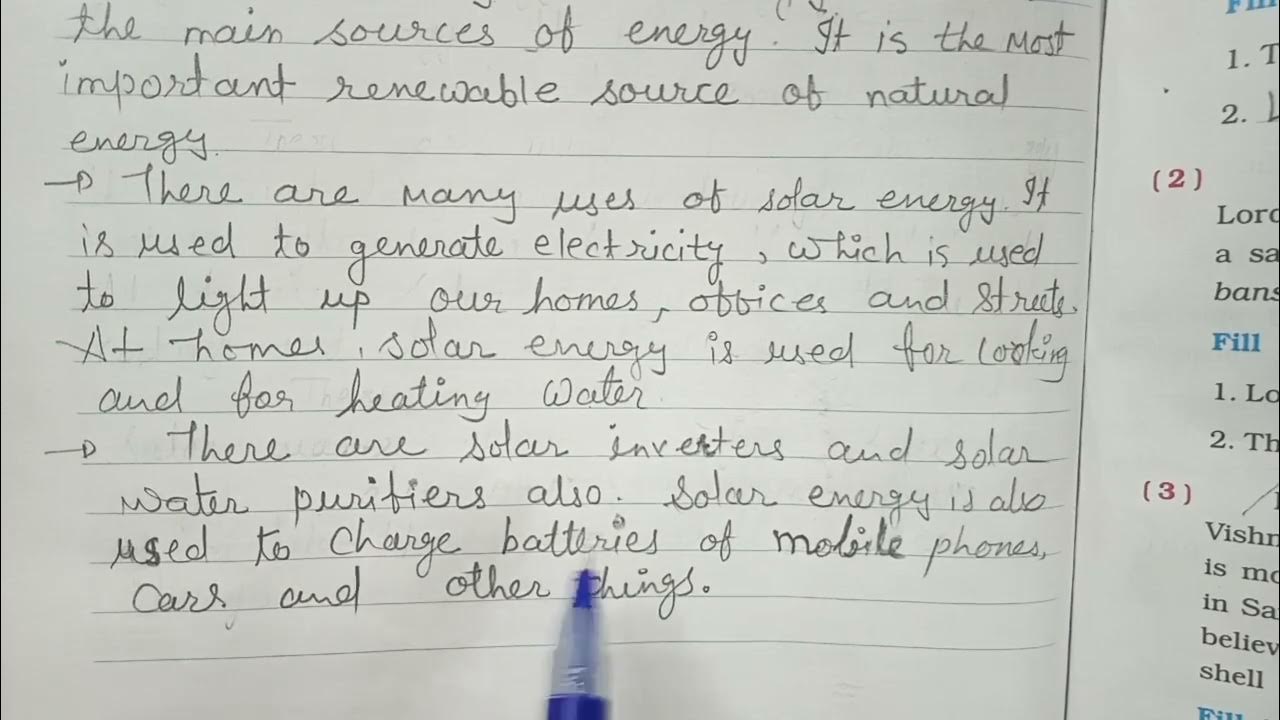 the main sources of energy. It is the Most
important renewable source of natural
energy.
→ There are many uses of solar energy. It
is used to generate electricity, which is used
to light up our homes, offices and streets.
At homes, solar energy is used for cooking
and for heating water.
→ There are solar inverters and solar
water purifiers also. Solar energy is also
used to charge batteries of mobile phones,
cars and other things.
1. T
2. L
(2)
Lord
a sa
bans
Fill
1. Lo
2. Th
(3)
Vishn
is mo
in Sa
believ
shell